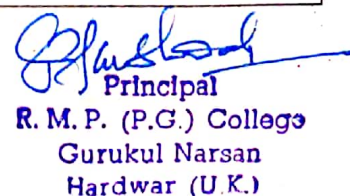 Principal
R. M. P. (P.G.) College
Gurukul Narsan
Hardwar (U.K.)